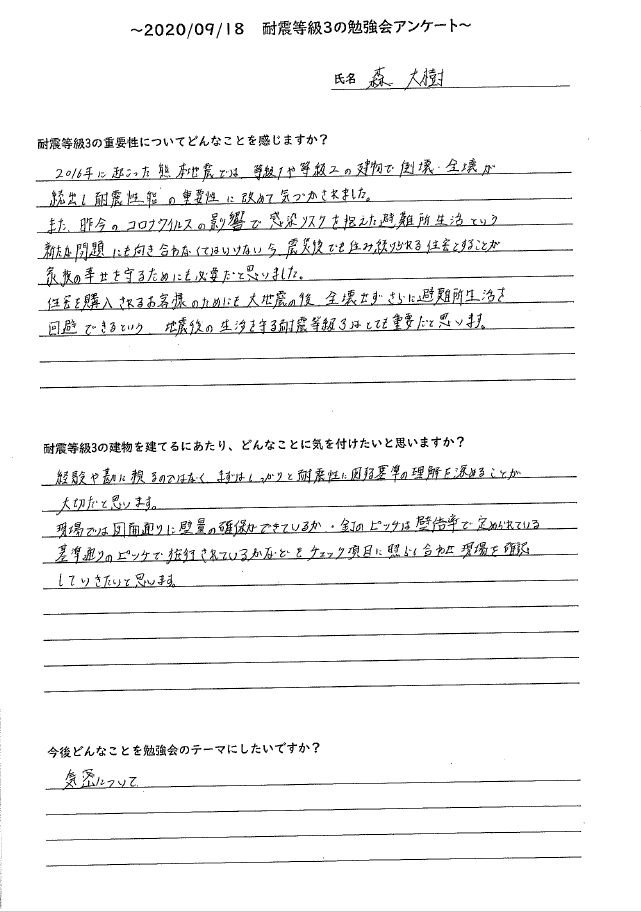 ～2020/09/18　耐震等級3の勉強会アンケート～
氏名　森　大樹
耐震等級3の重要性についてどんなことを感じますか？
2016年に起こった熊本地震では、等級1や等級2の建物で倒壊・全壊が
続出し耐震性能の重要性に改めて気づかされました。
また、昨今のコロナウイルスの影響で感染リスクを抱えた避難所生活という
新たな問題にも向き合わなくてはいけない今、震災後でも住み続けられる住宅とすることが
家族の幸せを守るためにも必要だと思いました。
住宅を購入されるお客様のためにも大地震の後、全壊せずさらに避難所生活を
回避できるという　地震後の生活を守る耐震等級3はとても重要だと思います。
耐震等級3の建物を建てるにあたり、どんなことに気を付けたいと思いますか？
経験や勘に頼るのではなく、まずはしっかりと耐震性に関する基準の理解を深めることが
大切だと思います。
現場では図面通りに壁量の確保ができているか・釘のピッチは壁倍率で定められている
基準通りのピッチで施行されているかなどをチェック項目に照らし合わせ現場を確認
していきたいと思います。
今後どんなことを勉強会のテーマにしたいですか？
気密について